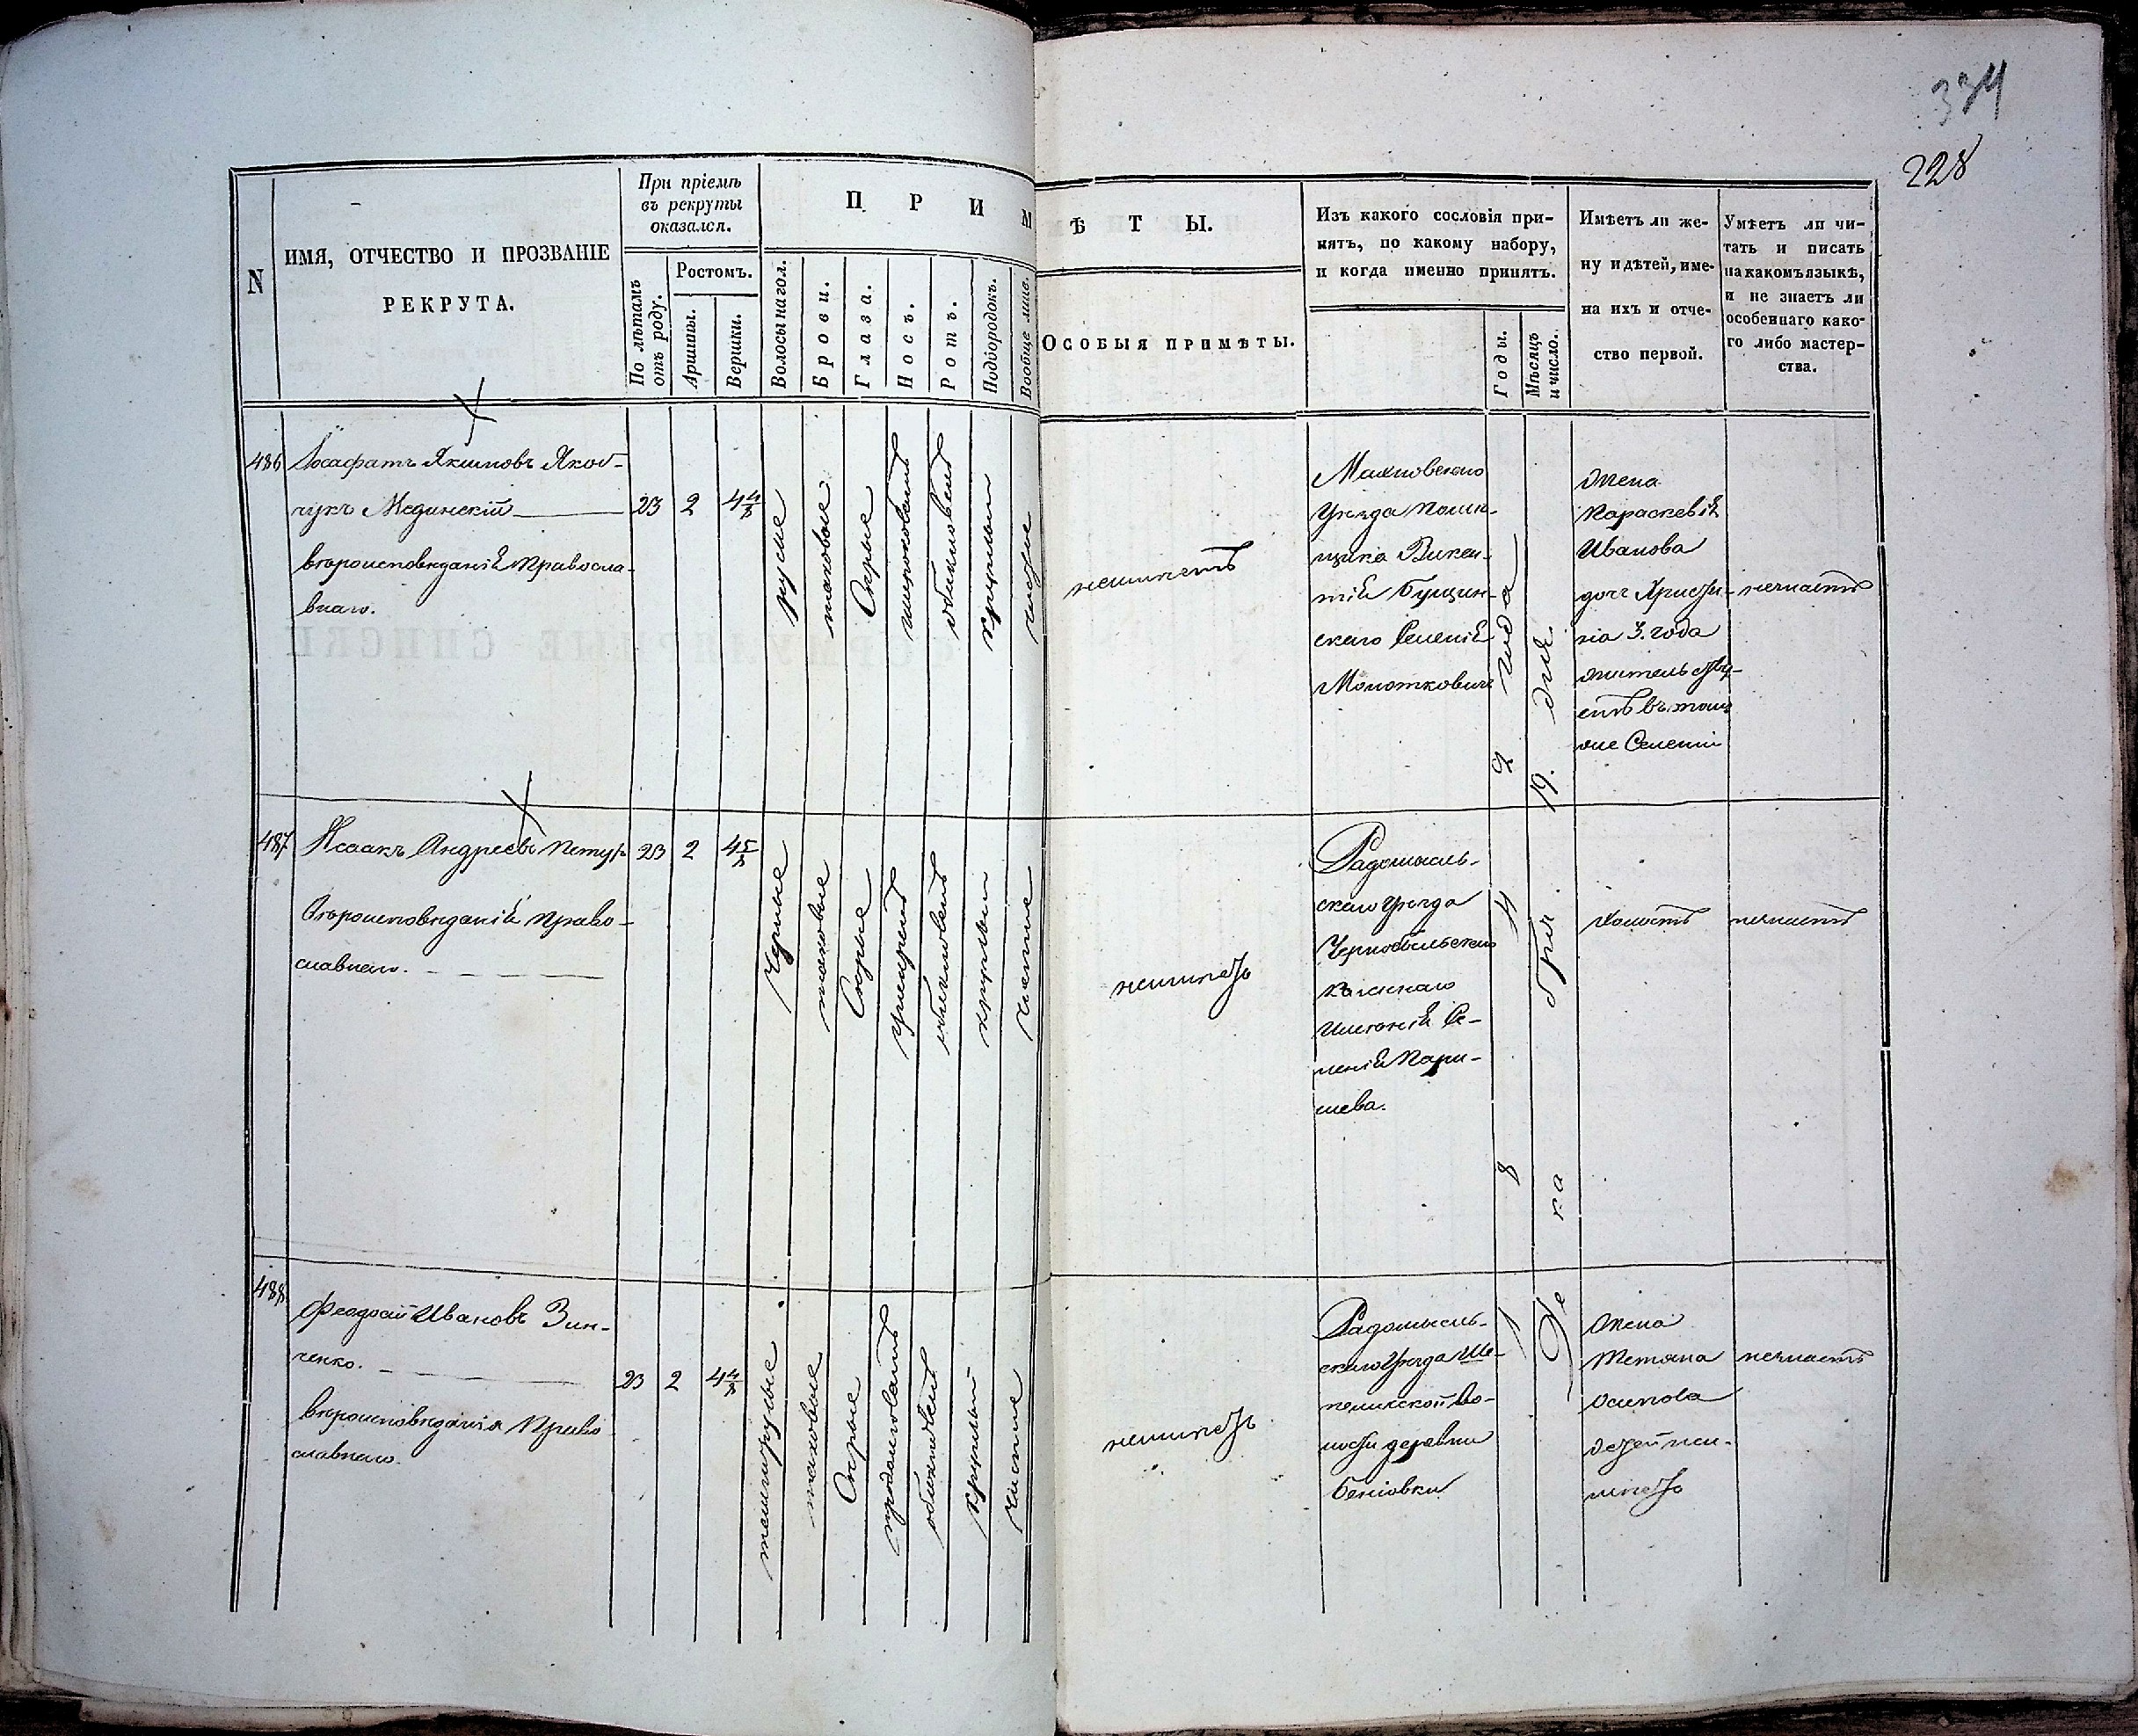 334
228
N
ИМЯ, ОТЧЕСТВО И ПРОЗВАНІЕ
РЕКРУТА.
При пріемѣ
въ рекруты
оказался.
По лѣтамъ
отъ роду.
Ростомъ.
Аршины.
Вершки.
ПРИМ
Волосы на гол.
Брови.
Глаза.
Носъ.
Ротъ.
Подбородокъ.
Вообще лице.
ѢТЫ.
ОСОБЫЯ ПРИМѢТЫ.
Изъ какого сословія при-
нятъ, по какому набору,
и когда именно принятъ.
Годы.
Мѣсяцъ
и число.
Имѣетъ ли же-
ну и дѣтей, име-
на ихъ и отче-
ство первой.
Умѣетъ ли чи-
тать и писать
на какомъ языкѣ,
и не знаетъ ли
особеннаго како-
го либо мастер-
ства.
486
Іосафатъ Якимовъ Яков-
чукъ Мединскій
вѣроисповѣданія Правосла-
внаго.
23
2
4 4/8
русые
таковые
Сѣрые
широковатъ
обыкновенъ
круглый
чистое
неимѣетъ
Махновскаго
Уѣзда Помѣ-
щика Викен-
тія
скаго Селенія
Молотковичь
Жена
Параскевія
Иванова
дочь Христи-
на 3. года
жительству-
етъ въ томъ
же Селеніи
незнаетъ
487
Исаакъ Андреевъ
Вѣроисповѣданія Право-
славнаго.
23
2
4 5/8
Черные
таковые
Сѣрые
обыкновенъ
круглый
чистое
неимѣетъ
Радомысль-
скаго Уѣзда
Чернобыльскаго
казеннаго
Имѣнія Се-
ленія Пари-
шева.
Холостъ
незнаетъ
488
Феодосій Ивановъ Зин-
ченко.
вѣроисповѣданія Право
славнаго.
23
2
4 4/8
темнорусые
таковые
Сѣрые
продолговатъ
обыкновенъ
круглый
чистое
неимѣетъ
Радомысль-
скаго Уѣзда Ше-
пелисской Во-
лости деревни
Беніовки
1842 года
Декабря 19. дня
Жена
Татіана
Осипова
детей неи-
мѣетъ
незнаетъ